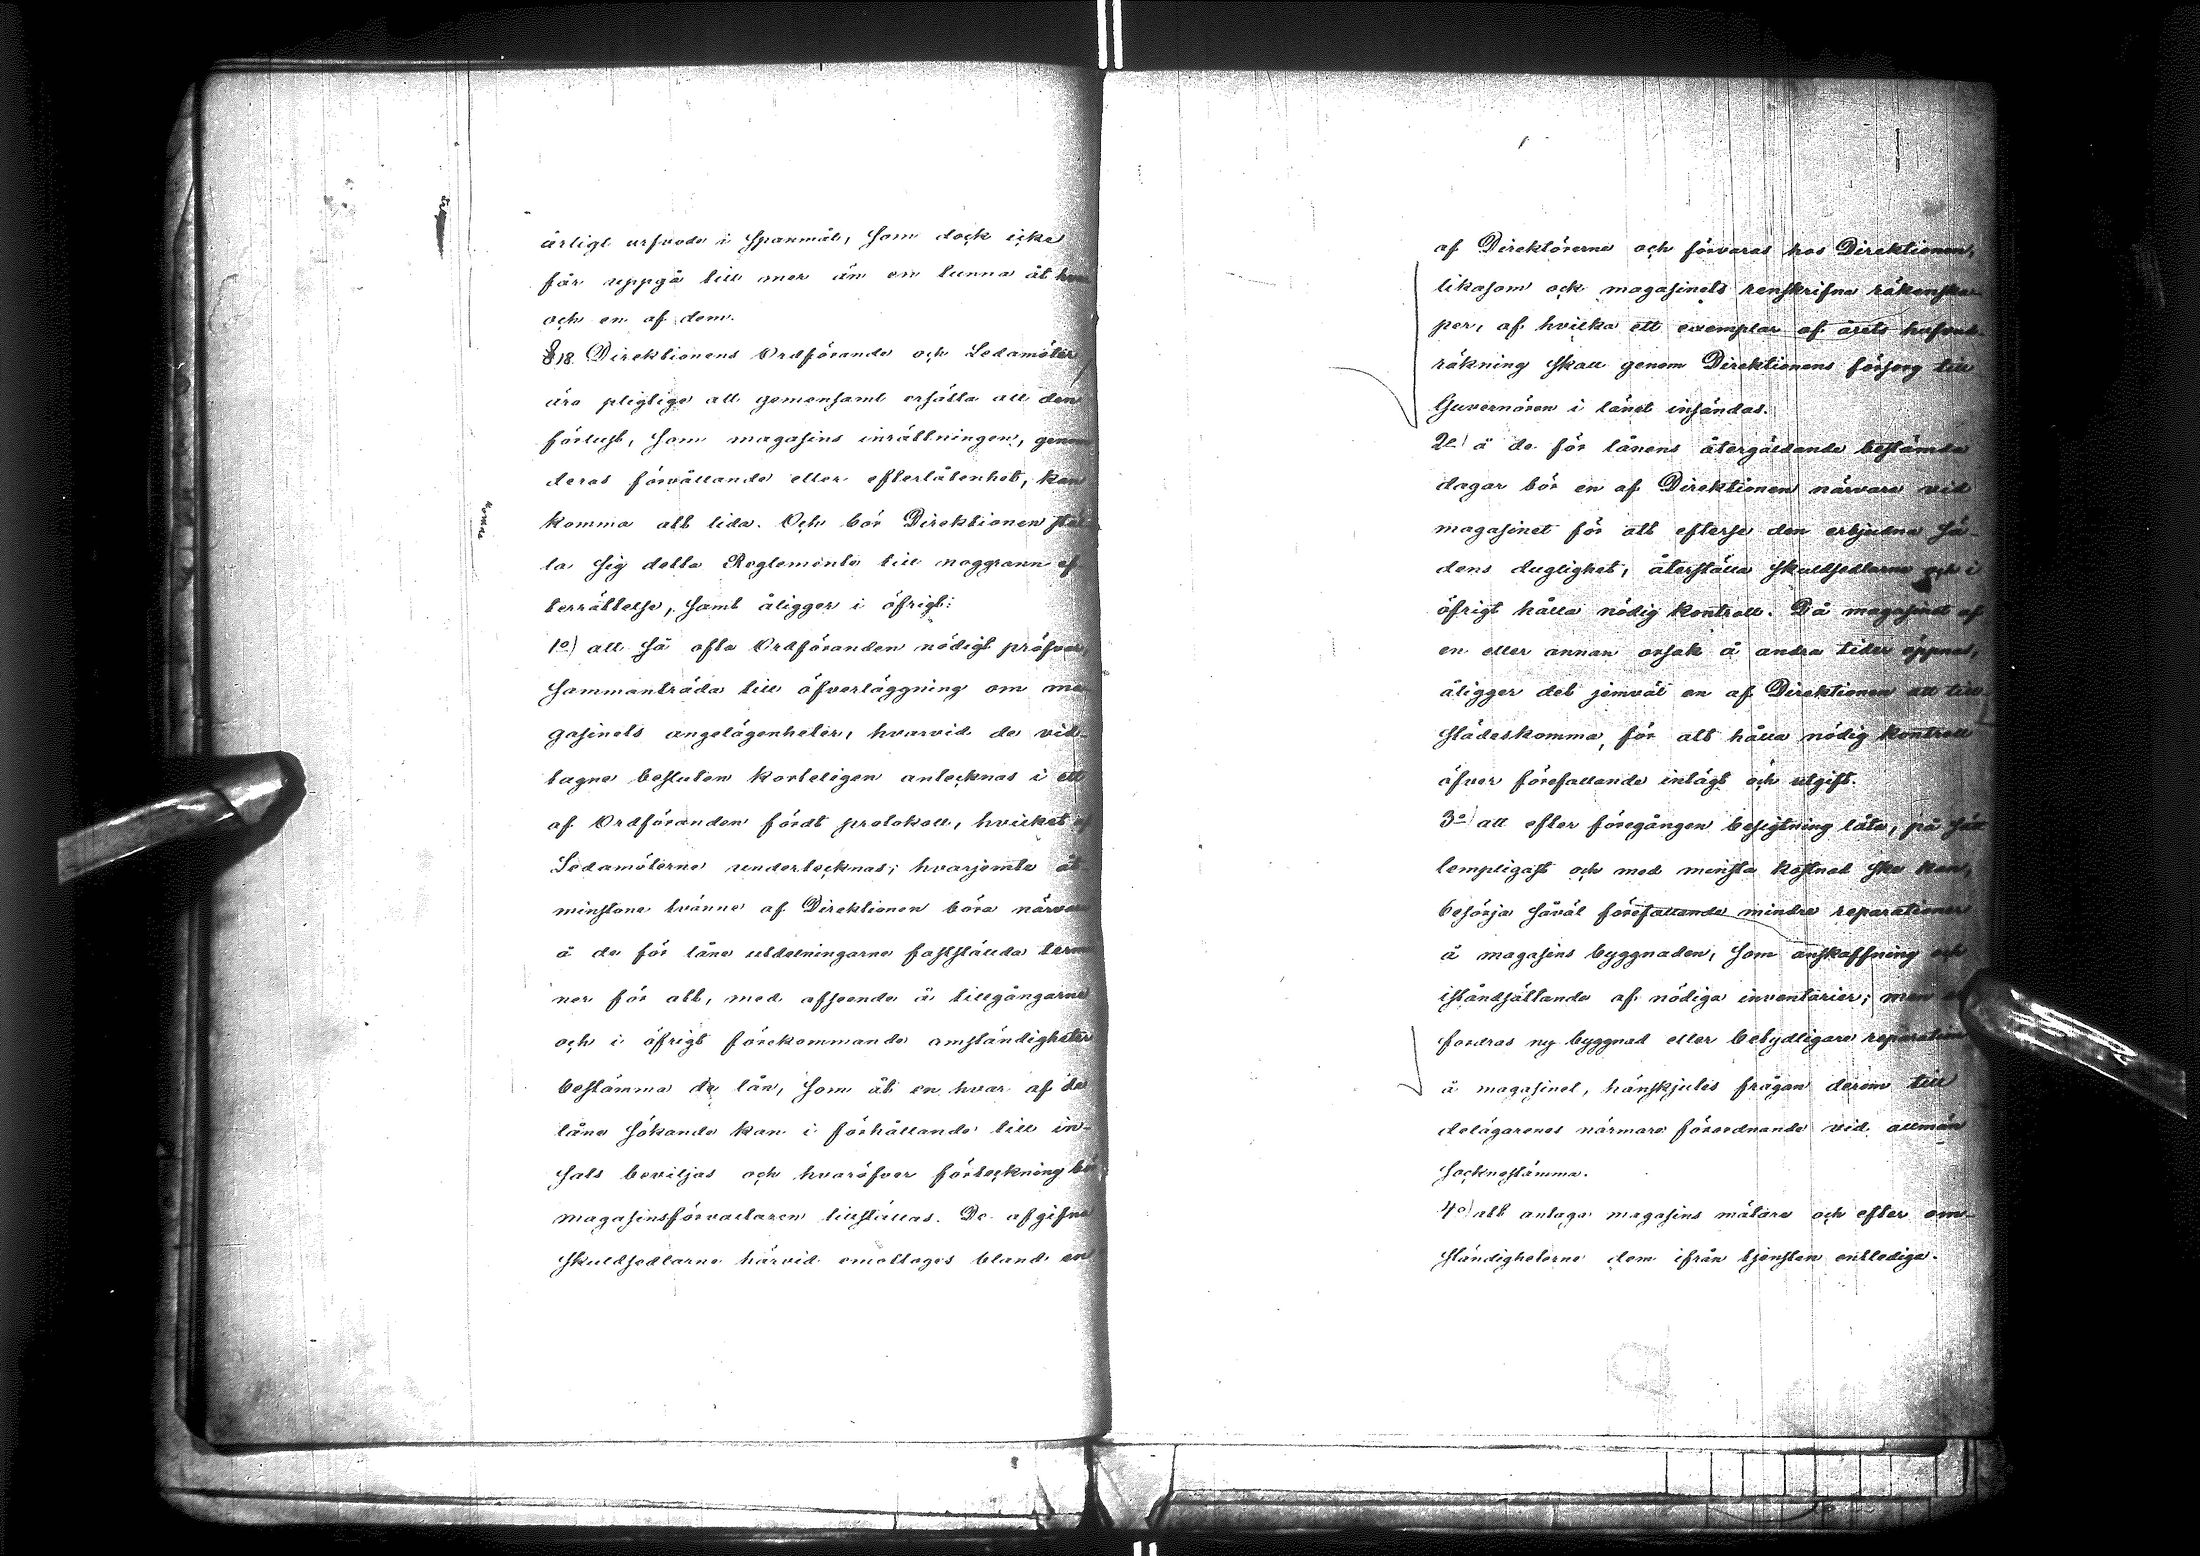 årligt arfvode i Spanmål, som dock icke
får uppgå till mer än en tunna åt hvar
och en af dem.
§18. Direktionens Ordförande och Ledamöter
äro pligtige att gemensamt ersätta all den
förlust, som magasins inrättningen, genom
deras förvållande eller efterlåtenhet, kan
komma att lida. Och bör Direktionen stäl-
la sig detta Reglemente till noggrann ef-
terrättelse, samt åligger i öfrigt:
1o) att så ofta Ordföranden nödigt pröfvar,
sammanträda till öfverläggning om ma-
gasinets angelägenheter, hvarvid de vid-
tagne besluten korteligen antecknas i ett
af Ordföranden fördt protokoll, hvilket af
Ledamöterne undertecknas; hvarjemte åt-
minstone tvänne af Direktionen böra närvara
å de för låne utdelningarne fastställda termi-
ner för att, med afseende å tillgångarne
och i öfrigt förekommande omständigheter
bestämma de lån, som åt en hvar af de
låne sökande kan i förhållande till in-
sats beviljas och hvaröfver förteckning bör
magasinsförvaltaren tillställas. De afgifne
skuldsedlarne härvid emottages bland en
af Direktörerne och förvaras hos Direktionen,
likasom ock magasinets renskrifne räkenska-
per, af hvilka ett exemplar af årets hufvud
räkning skall genom Direktionens försorg till
Guvernören i länet insändas.
2o) å de för lånens återgäldande bestämda
dagar bör en af Direktionen närvara vid
magasinet för att efterse den erbjudna sä-
dens duglighet, återställa skuldsedlarne och i
öfrigt hålla nödig kontroll. Då magasinet af
en eller annan orsak å andra tider öppnas,
åligger det jemväl en af Direktionen att till
städeskomma, för att hålla nödig kontroll
öfver förefallande inlägt och utgift.
3o) att efter föregången besigtning låta, på sätt
lempligast och med minsta kostnad ske kan,
besörja såväl förefallande mindre reparationer
å magasins byggnaden, som anskaffning och
iståndsättande af nödiga inventarier; men
fordras ny byggnad eller betydligare reparation
å magasinet, hänskjutes frågan derom till
delägarenes närmare förordnande vid allmän
socknestämma.
4o) att antaga magasins mätare och efter om-
ständigheterne dem ifrån tjensten entlediga.